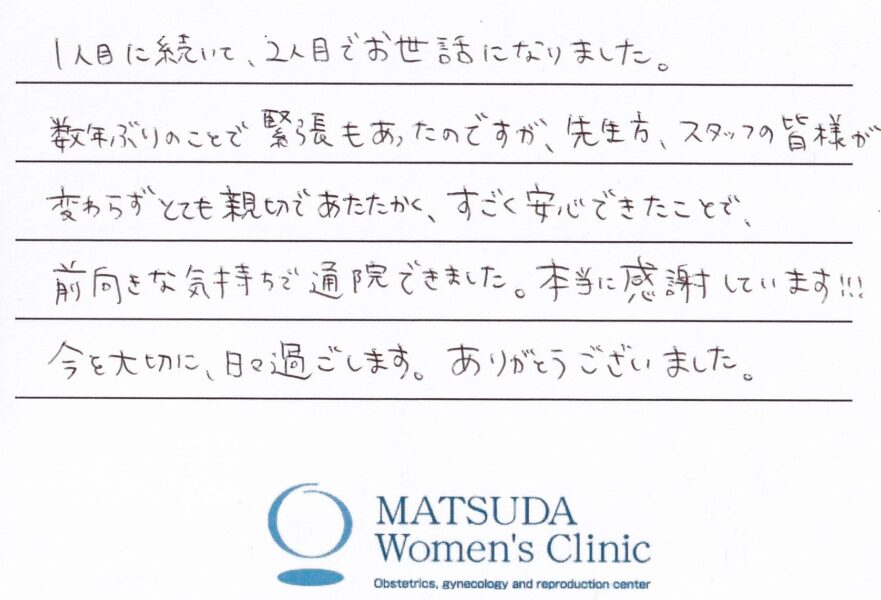 1人目に続いて、2人目でお世話になりました。
数年ぶりのことで緊張もあったのですが、先生方、スタッフの皆様が
変わらずとても親切であたたかく、すごく安心できたことで、
前向きな気持ちで通院できました。本当に感謝しています!!!
今を大切に、日々過ごします。ありがとうございました。
MATSUDA
Women's Clinic
Obstetrics, gynecology and reproduction center